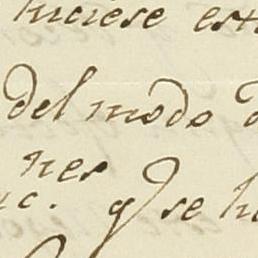 hiciese est
del modo d
nes
nc. q se h